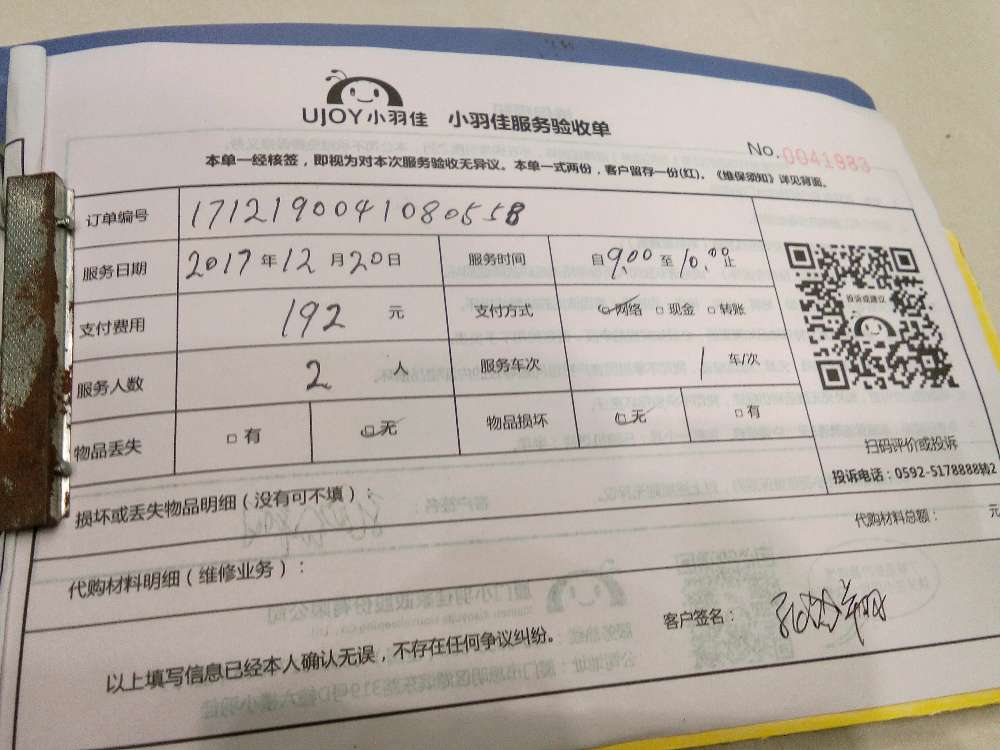 UJOY小羽佳 小羽佳服务验收单
No.0041983
本单一经核签，即视为对本次服务验收无异议。本单一式两份，客户留存一份(红)。《维保须知》详见背面。
订单编号 1712190041080558
服务日期 2017年12月20日 服务时间 自9:00至10:00止
支付费用 192 元 支付方式 网络 现金 转账
投诉或建议
服务人数 2 人 服务车次 1 车/次
物品丢失 有 无 物品损坏 无 有
扫码评价或投诉
投诉电话：0592-5178888转2
损坏或丢失物品明细（没有可不填）：
代购材料总额： 元
代购材料明细（维修业务）：
客户签名：
以上填写信息已经本人确认无误，不存在任何争议纠纷。